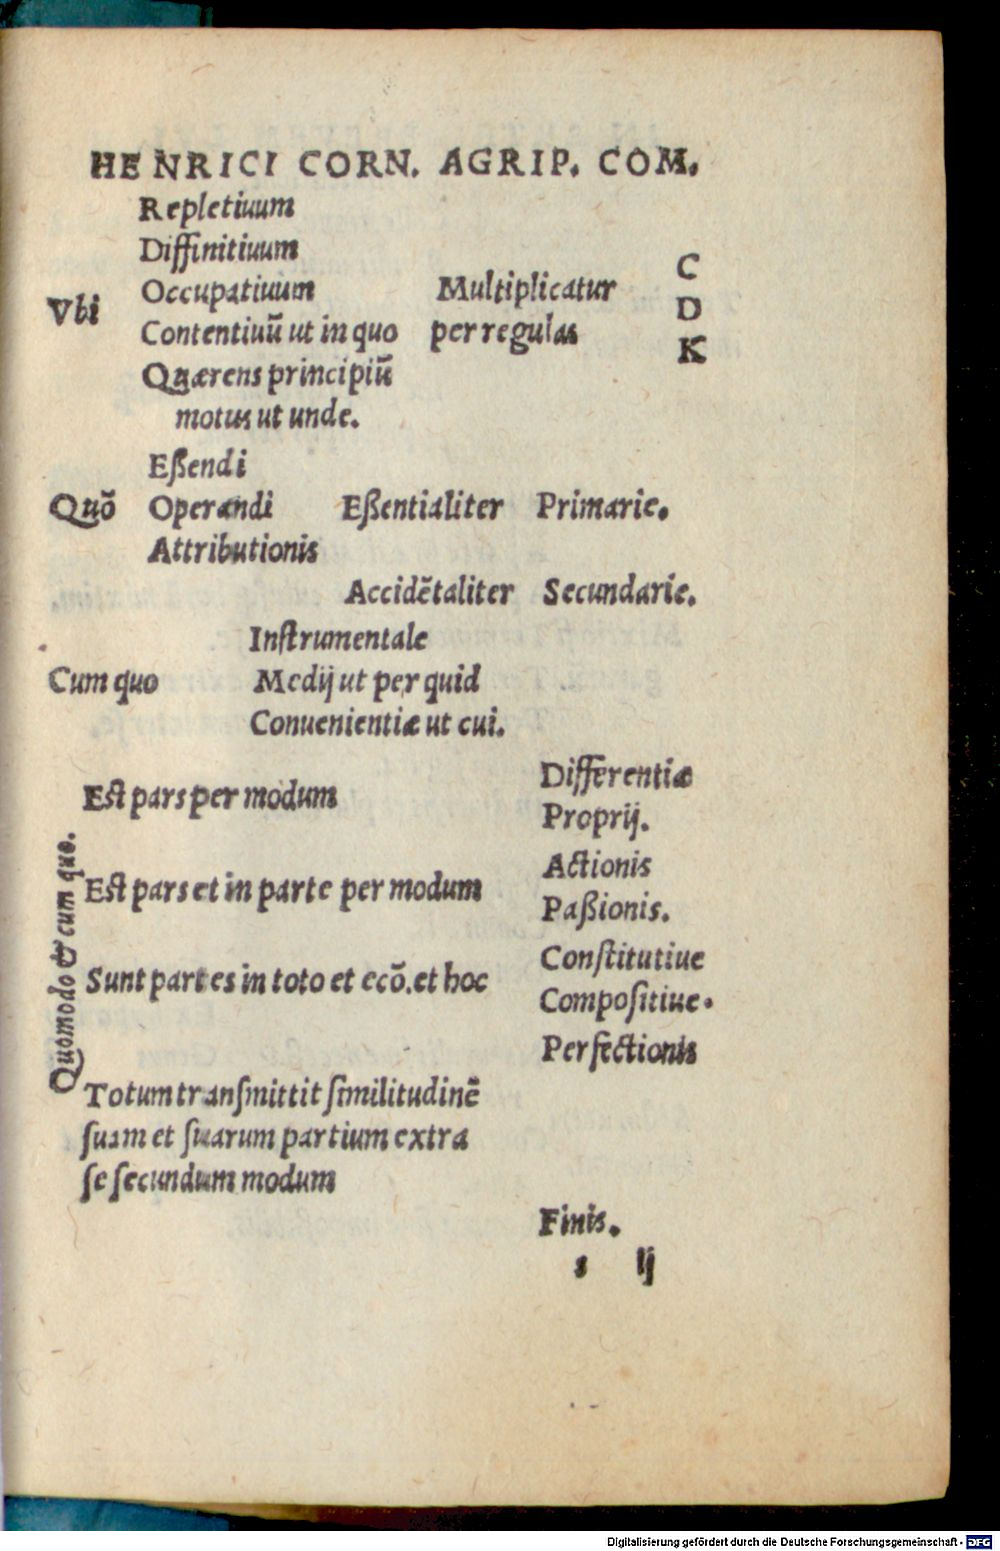 HENRICI CORN. AGRIP. COM.
Repletiuum
Diffinitiuum
Occupatiuum Multiplicatur C
Vbi Contentiuũ ut in quo per regulas D
Quærens principiũ K
motus ut unde.
Eßendi
Quõ Operandi Eßentialiter Primarie.
Attributionis
Accidẽtaliter Secundarie.
Inſtrumentale
Cum quo Medij ut per quid
Conuenientiæ ut cui.
Differentiæ
Est pars per modum
Proprij.
Actionis
Est pars et in parte per modum
Paßionis.
Conſtitutiue
Sunt partes in toto et ecõ. et hoc
Compoſitiue.
Perfectionis
Quomodo & cum quo.
Totum tranſmittit ſimilitudinẽ
ſuam et ſuarum partium extra
ſe ſecundum modum
Finis.
s ij
Digitalisierung gefördert durch die Deutsche Forschungsgemeinschaft - DFG